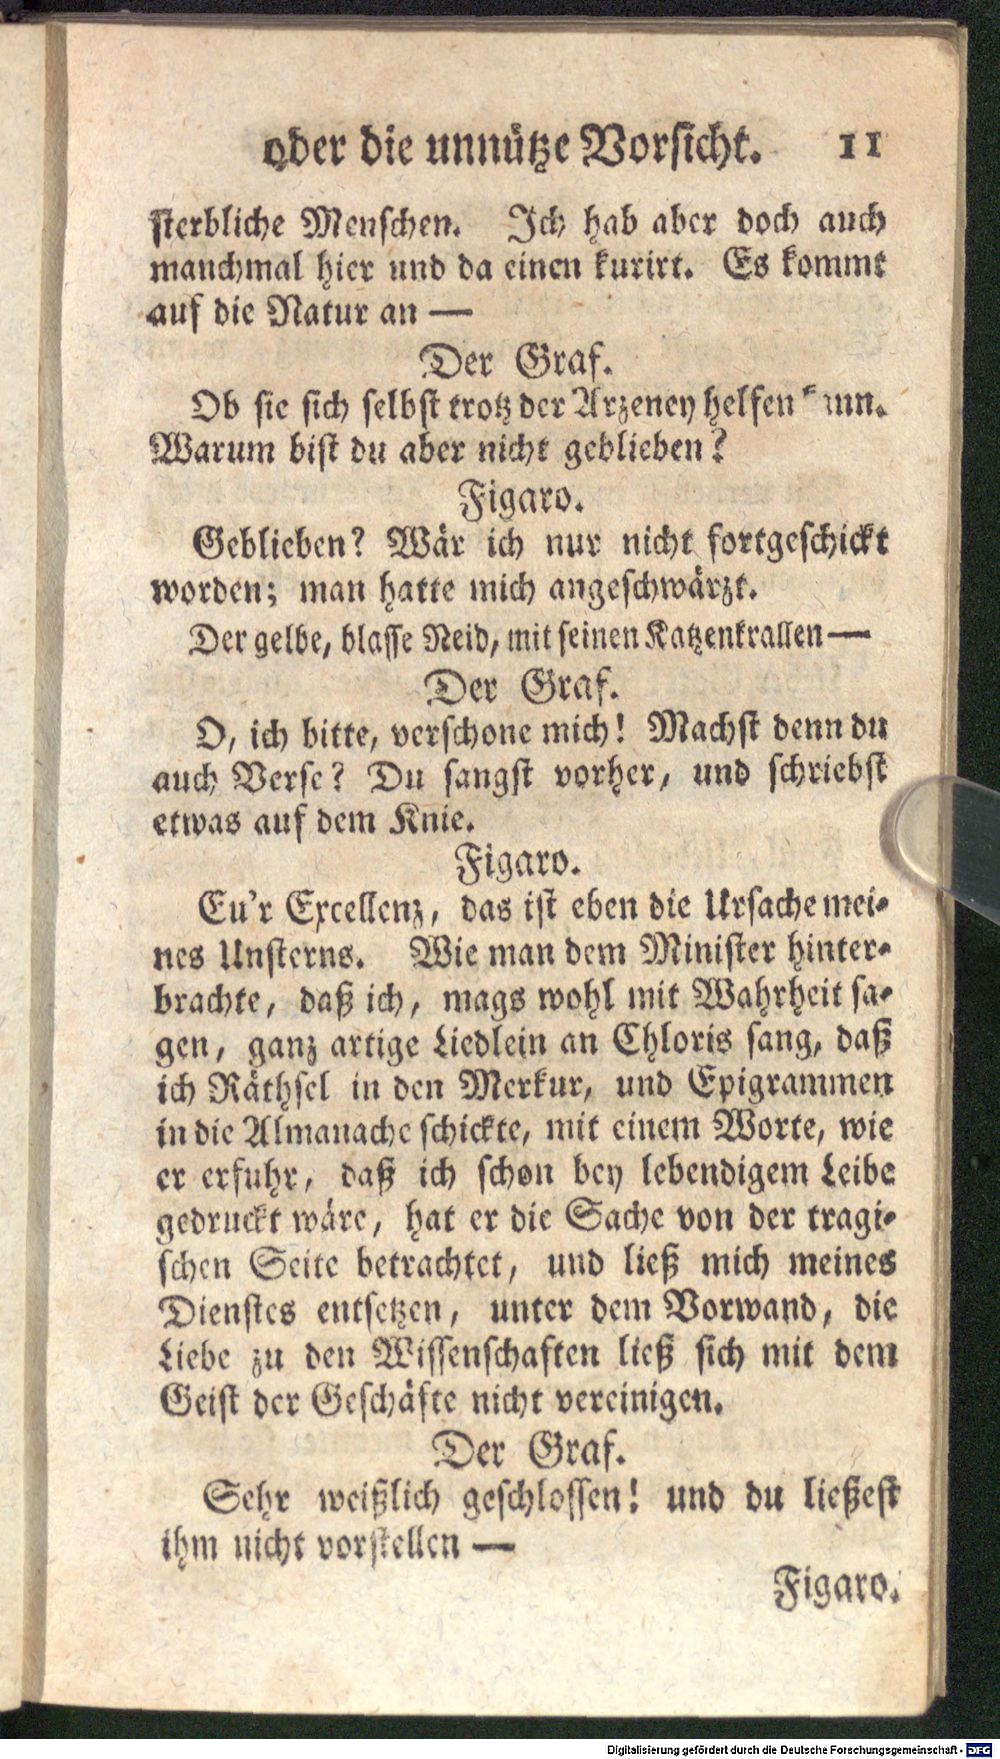 oder die unnütze Vorsicht. 11
sterbliche Menschen. Ich hab aber doch auch
manchmal hier und da einen kurirt. Es kommt
auf die Natur an —
Der Graf.
Ob sie sich selbst trotz der Arzeney helfen kann.
Warum bist du aber nicht geblieben?
Figaro.
Geblieben? Wär ich nur nicht fortgeschickt
worden; man hatte mich angeschwärzt.
Der gelbe, blasse Neid, mit seinen Katzenkrallen —
Der Graf.
O, ich bitte, verschone mich! Machst denn du
auch Verse? Du sangst vorher, und schriebst
etwas auf dem Knie.
Figaro.
Eu'r Excellenz, das ist eben die Ursache mei-
nes Unsterns. Wie man dem Minister hinter-
brachte, daß ich, mags wohl mit Wahrheit sa-
gen, ganz artige Liedlein an Chloris sang, daß
ich Räthsel in den Merkur, und Epigrammen
in die Almanache schickte, mit einem Worte, wie
er erfuhr, daß ich schon bey lebendigem Leibe
gedruckt wäre, hat er die Sache von der tragi-
schen Seite betrachtet, und ließ mich meines
Dienstes entsetzen, unter dem Vorwand, die
Liebe zu den Wissenschaften ließ sich mit dem
Geist der Geschäfte nicht vereinigen.
Der Graf.
Sehr weißlich geschlossen! und du ließest
ihm nicht vorstellen —
Figaro.
Digitalisierung gefördert durch die Deutsche Forschungsgemeinschaft - DFG